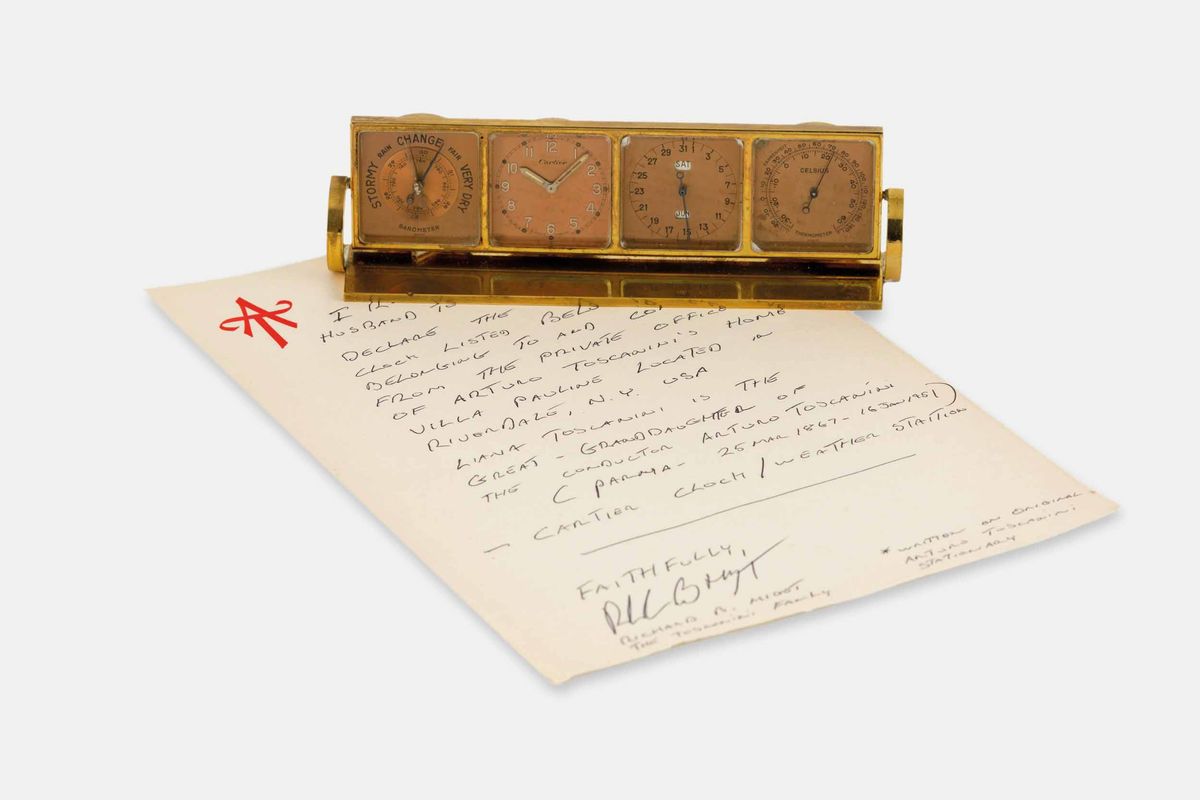 STORMY RAIN CHANGE FAIR VERY DRY
BAROMETER
Cartier
12 1 2 3 4 5 6 7 8 9 10 11
SAT
JUN
31 3 5 7 9 11 13 15 17 19 21 23 25 27 29
FAHRENHEIT
CELSIUS
THERMOMETER
I
HUSBAND TO
DECLARE THE
CLOCK LISTED BELO
BELONGING TO AND CO
FROM THE PRIVATE OFFICE
OF ARTURO TOSCANINI'S HOME
VILLA PAULINE LOCATED IN
RIVERDALE, N.Y. USA
LIANA TOSCANINI IS THE
GREAT-GRANDDAUGHTER OF
THE CONDUCTOR ARTURO TOSCANINI
(PARMA- 25 MAR 1867- 16 JAN 1957)
- CARTIER CLOCK/WEATHER STATION
FAITHFULLY,
RICHARD B. MIGOT
THE TOSCANINI FAMILY
* WRITTEN ON ORIGINAL
ARTURO TOSCANINI
STATIONARY